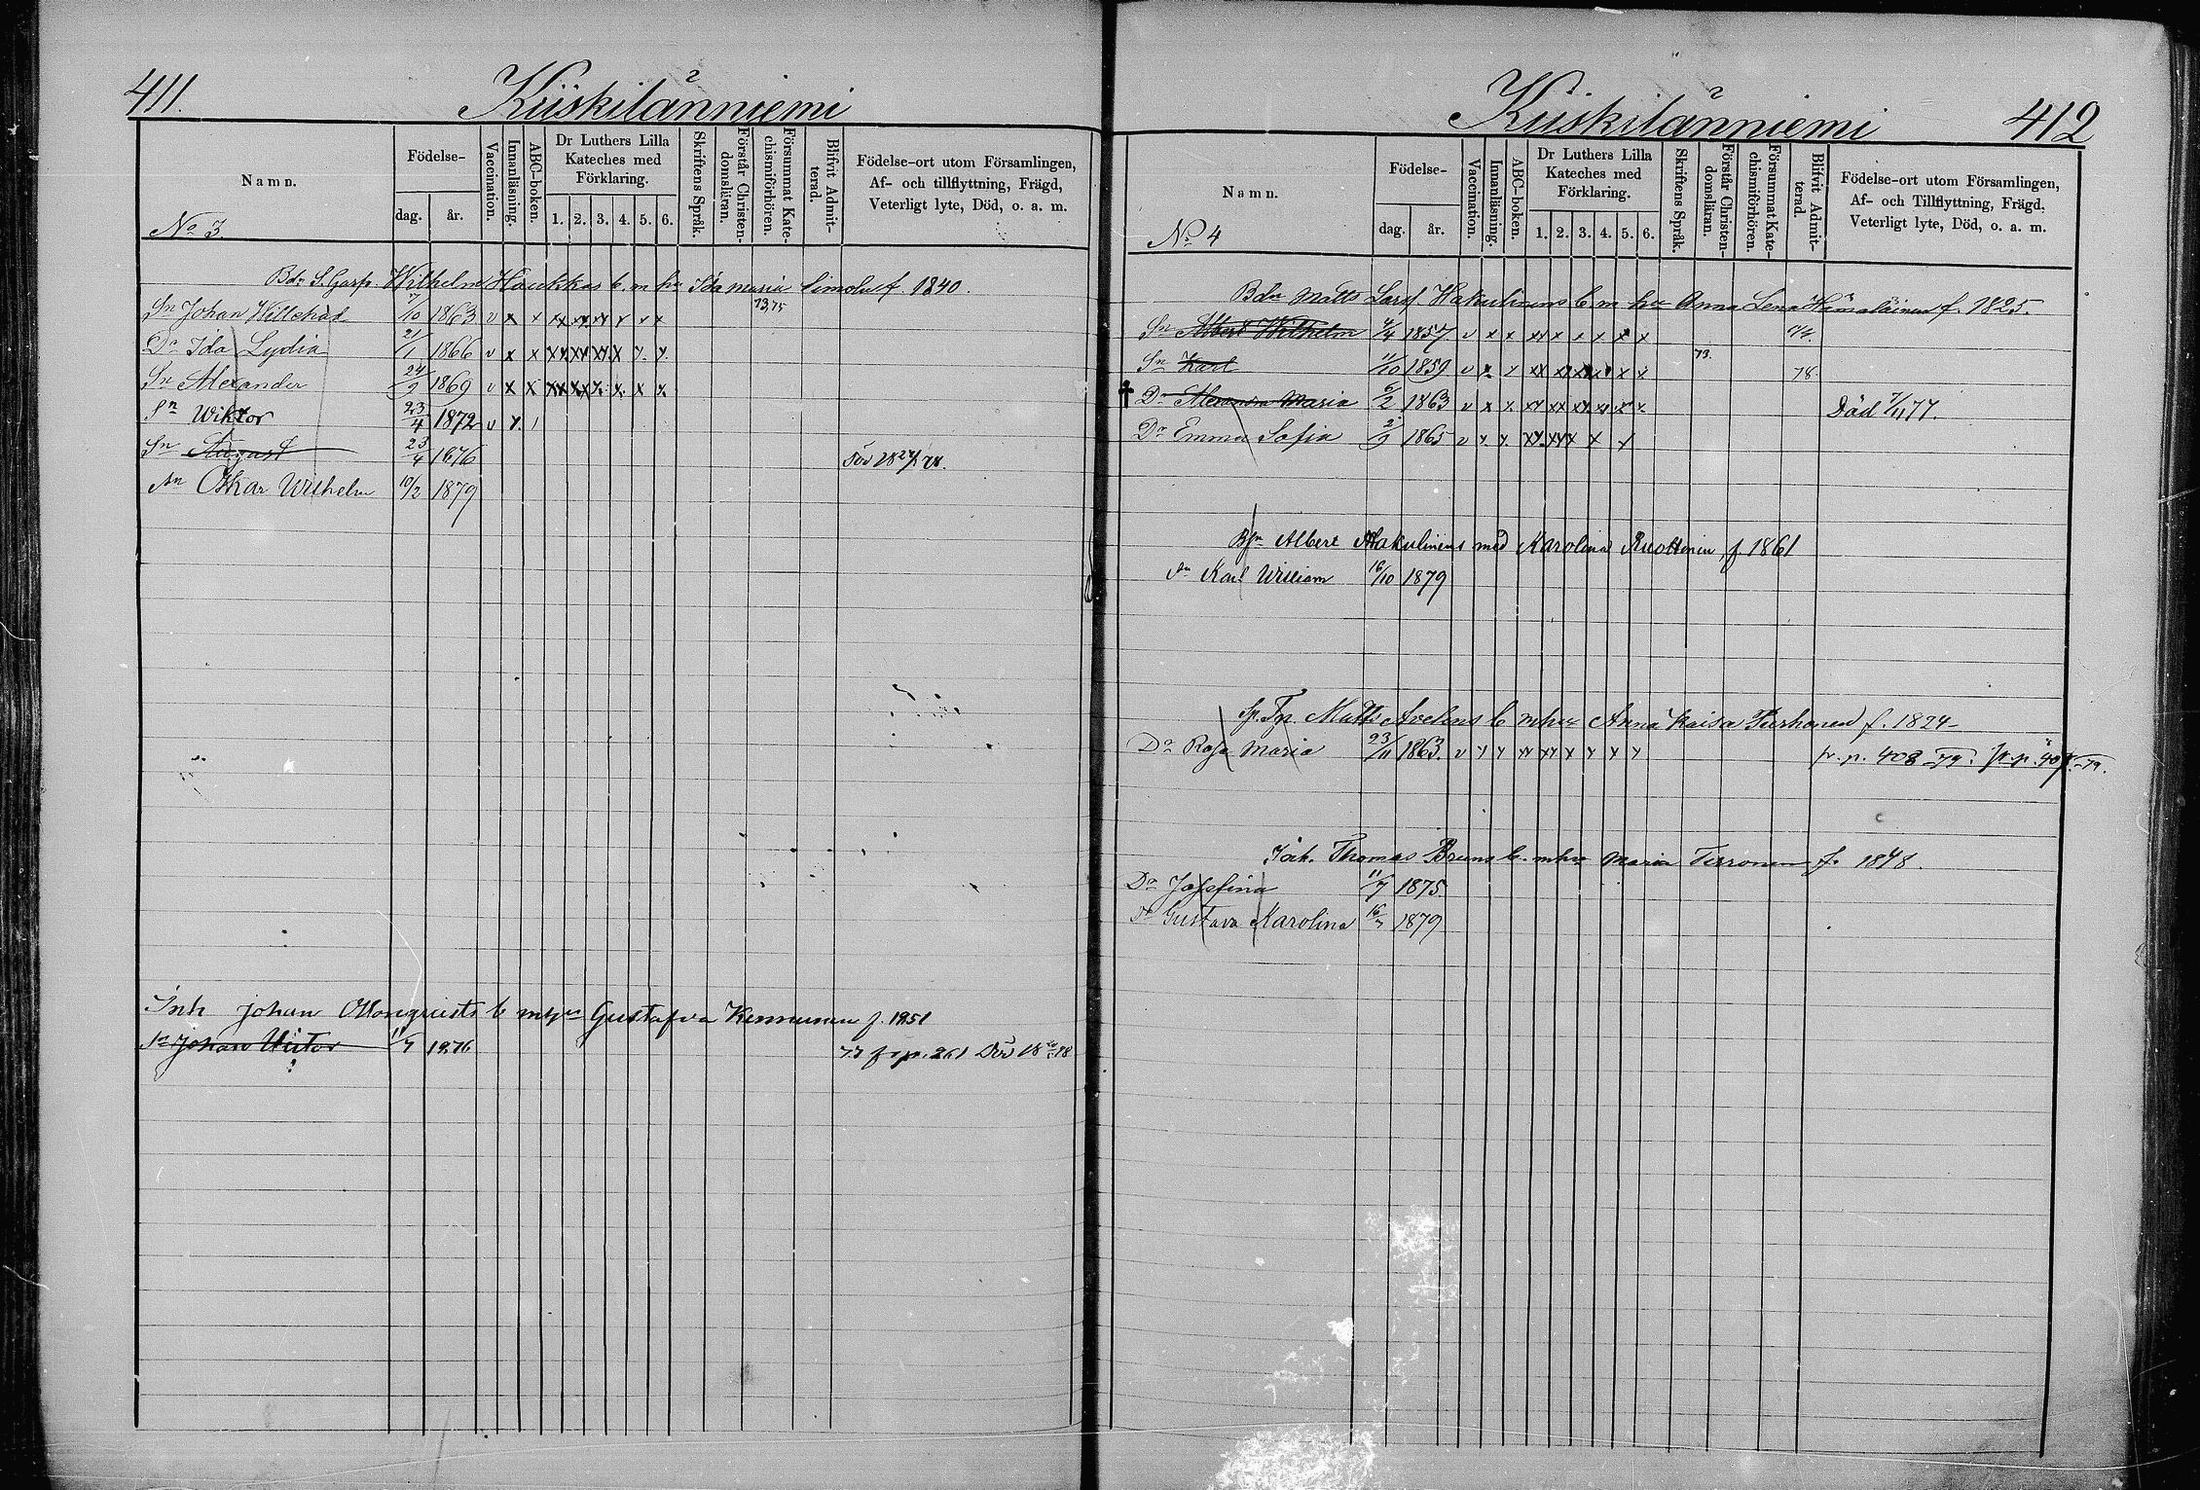 411.
Kiiskilänniemi
Namn.
Födelse-
dag.
år.
Vaccination.
Innanläsning.
ABC-boken.
Dr Luthers Lilla
Kateches med
Förklaring.
1. 2. 3. 4. 5. 6.
Skriftens Språk.
Förstår Christen-
domsläran.
Försummat Kate-
chismiförhören.
Blifvit Admit-
terad.
Födelse-ort utom Församlingen,
Af- och tillflyttning, Frägd,
Veterligt lyte, Död, o. a. m.
No 3
Wilhelm Haukkas b. m. hu Ida Maria f. 1840.
Sn Johan Willehad 7/10 1863 v x x xx xx xx x x x 73,75
Dr Ida Lydia 21/1 1866 v x x xx xx xx x x. x.
Sn Alexander 24/9 1869 v x x xx xx x. x. x x.
Sn Wiktor 23/4 1872 v x.
Sn August 23/4 1876
Sn Oskar Wilhelm 10/2 1879
Inh Johan b mhu Gustafva f. 1851
Sn Johan 11/7 1876 77 261
412
Kiiskilänniemi
Namn.
Födelse-
dag.
år.
Vaccination.
Innanläsning.
ABC-boken.
Dr Luthers Lilla
Kateches med
Förklaring.
1. 2. 3. 4. 5. 6.
Skriftens Språk.
Förstår Christen-
domsläran.
Försummat Kate-
chismiförhören.
Blifvit Admit-
terad.
Födelse-ort utom Församlingen,
Af- och Tillflyttning, Frägd,
Veterligt lyte, Död, o. a. m.
No 4
Bdn Matts Hakulinens b m hu Anna Lena Hämäläinen f. 1825.
Sn Albert Wilhelm 4/4 1857 v x x xx x x x x x
Sn Karl 11/10 1859 v x x xx xx xx x x x 73. 78.
† Dr Alexandra Maria 6/2 1863 v x x. xx xx xx xx x x Död 7/11 77.
Dr Emma Sofia 2/9 1865 v x x. xx xx x x x
Albert Hakulinens med Karolina f. 1861
Sn Karl William 16/10 1879
Matts b mhu Anna Kaisa f. 1824
Dr Rosa Maria 23/11 1863. v x x xx xx x x x x p. 408 79.
Thomas Bruns b. mhu Maria Terronen f. 1848.
Dr Josefina 11/7 1875
Dr Gustava Karolina 16/7 1879